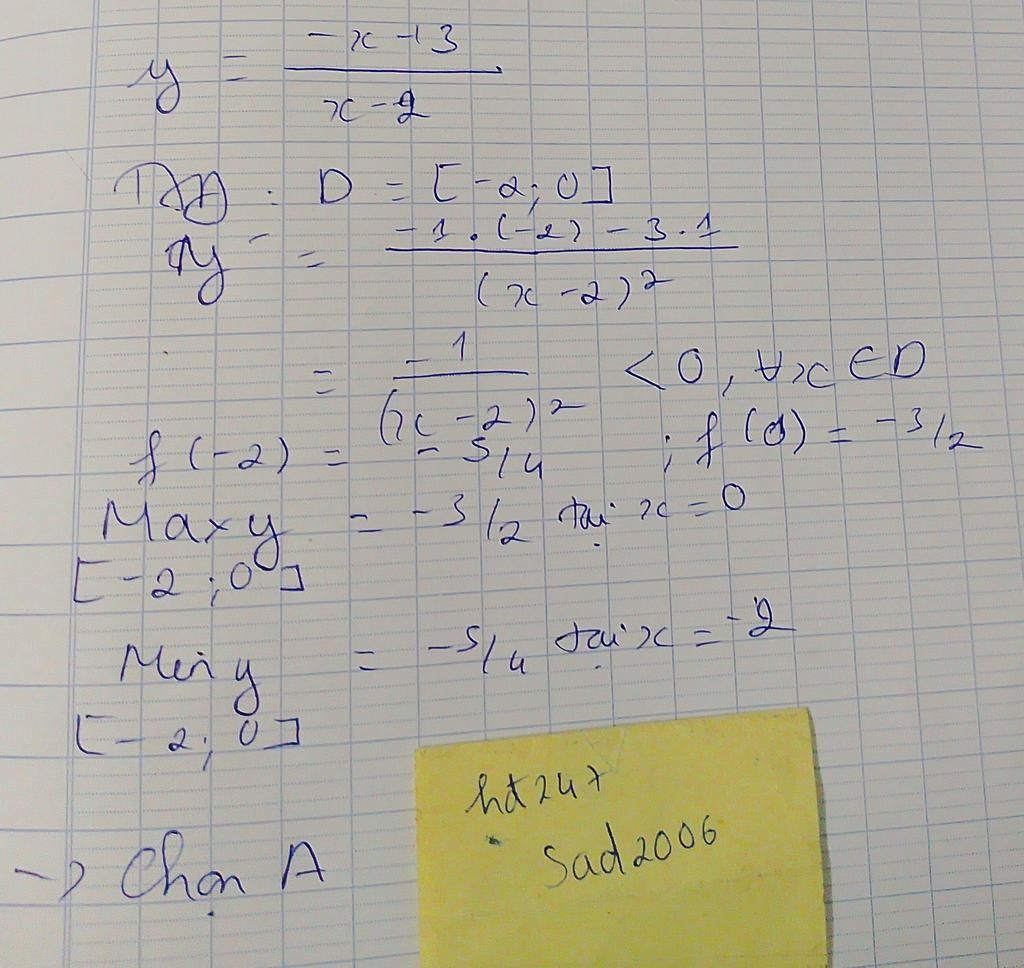 y = (-x+3)/(x-2)
TXĐ : D = [-2; 0]
y' = (-1.(-2) - 3.1)/(x-2)²
= -1/(x-2)² < 0, ∀x ∈ D
f(-2) = -5/4 ; f(0) = -3/2
Max y = -3/2 tại x = 0
[-2; 0]
Min y = -5/4 tại x = -2
[-2; 0]
→ Chọn A
hd247
Sad2006